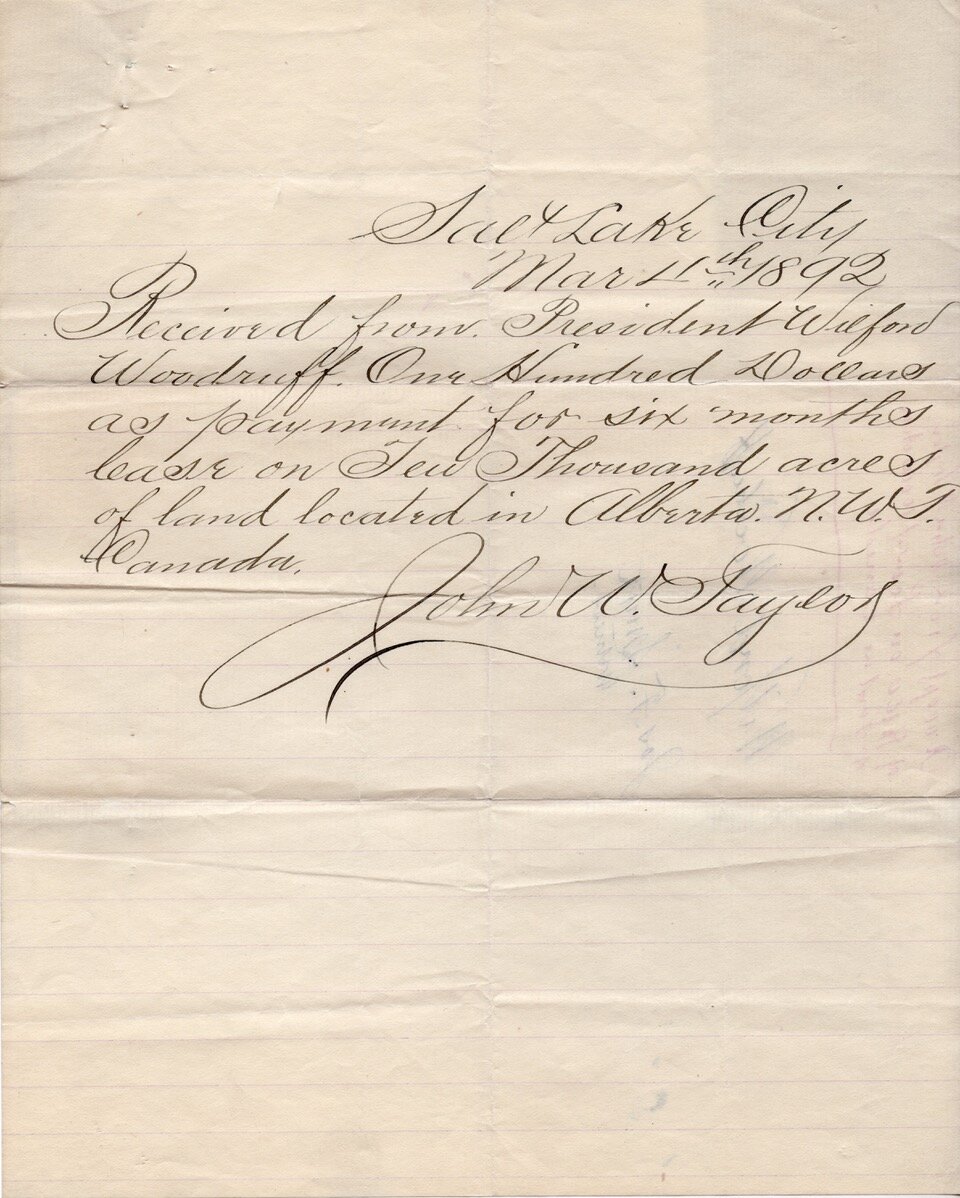 Salt Lake City
Mar 11th 1892
Received from President Wilford
Woodruff. One Hundred Dollars
as payment for six months
lease on Ten Thousand acres
of land located in Alberta. N.W.T.
Canada.
John W. Taylor